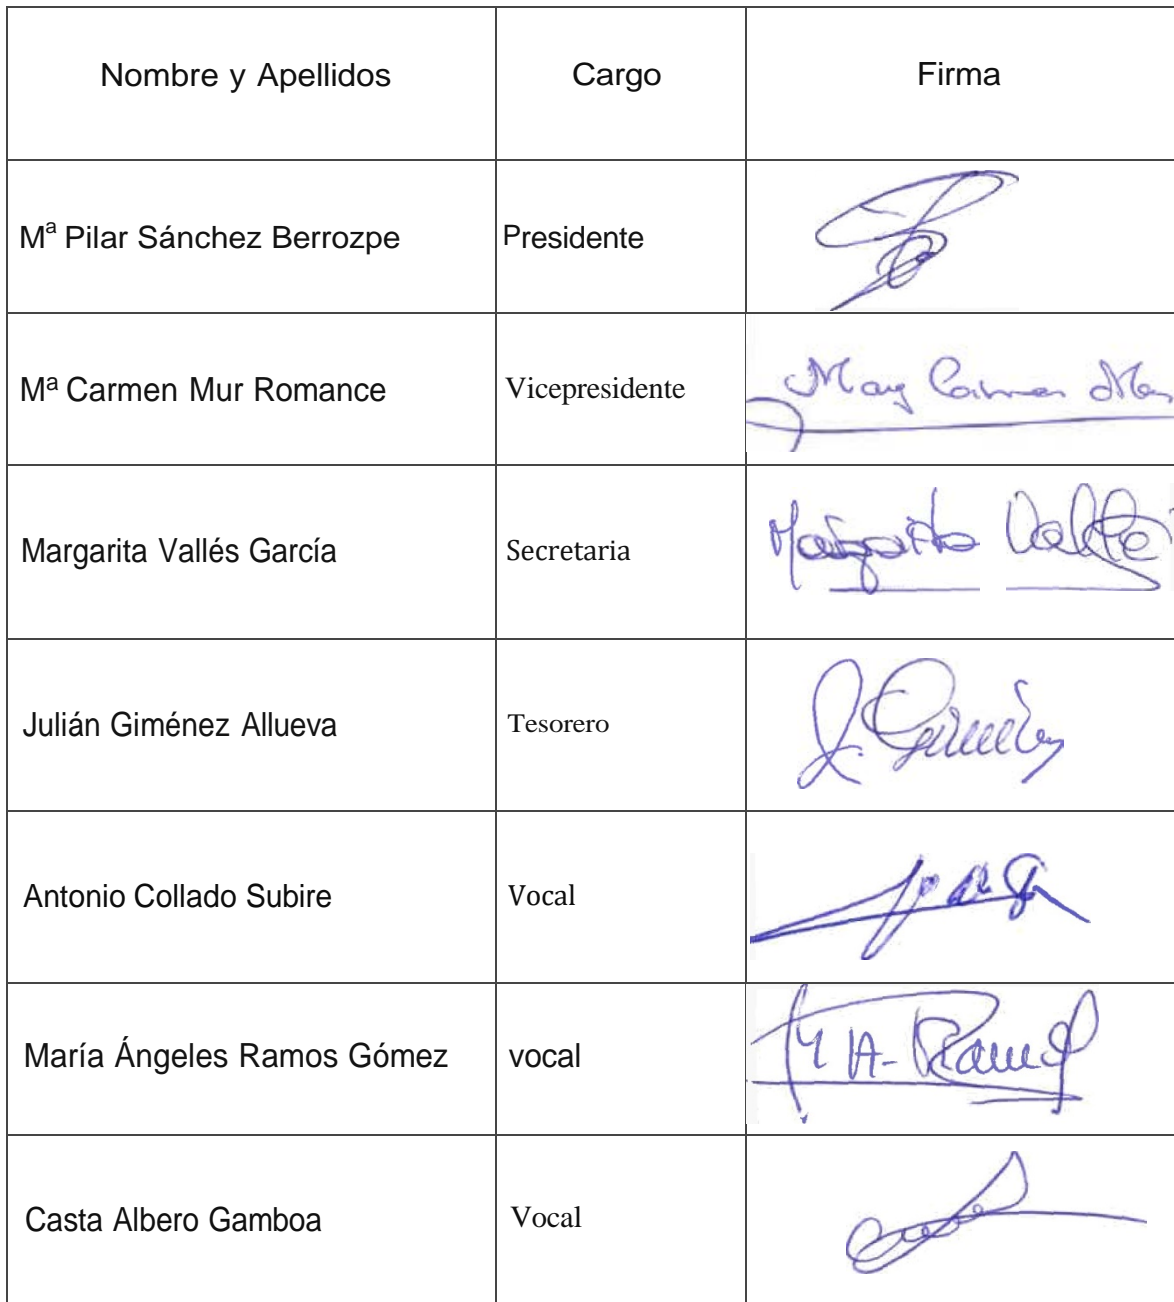 Nombre y Apellidos Cargo Firma
Mª Pilar Sánchez Berrozpe Presidente
Mª Carmen Mur Romance Vicepresidente Mary Carmen Mur
Margarita Vallés García Secretaria Margarita Vallés
Julián Giménez Allueva Tesorero J. Giménez
Antonio Collado Subire Vocal
María Ángeles Ramos Gómez vocal M A- Ramos
Casta Albero Gamboa Vocal